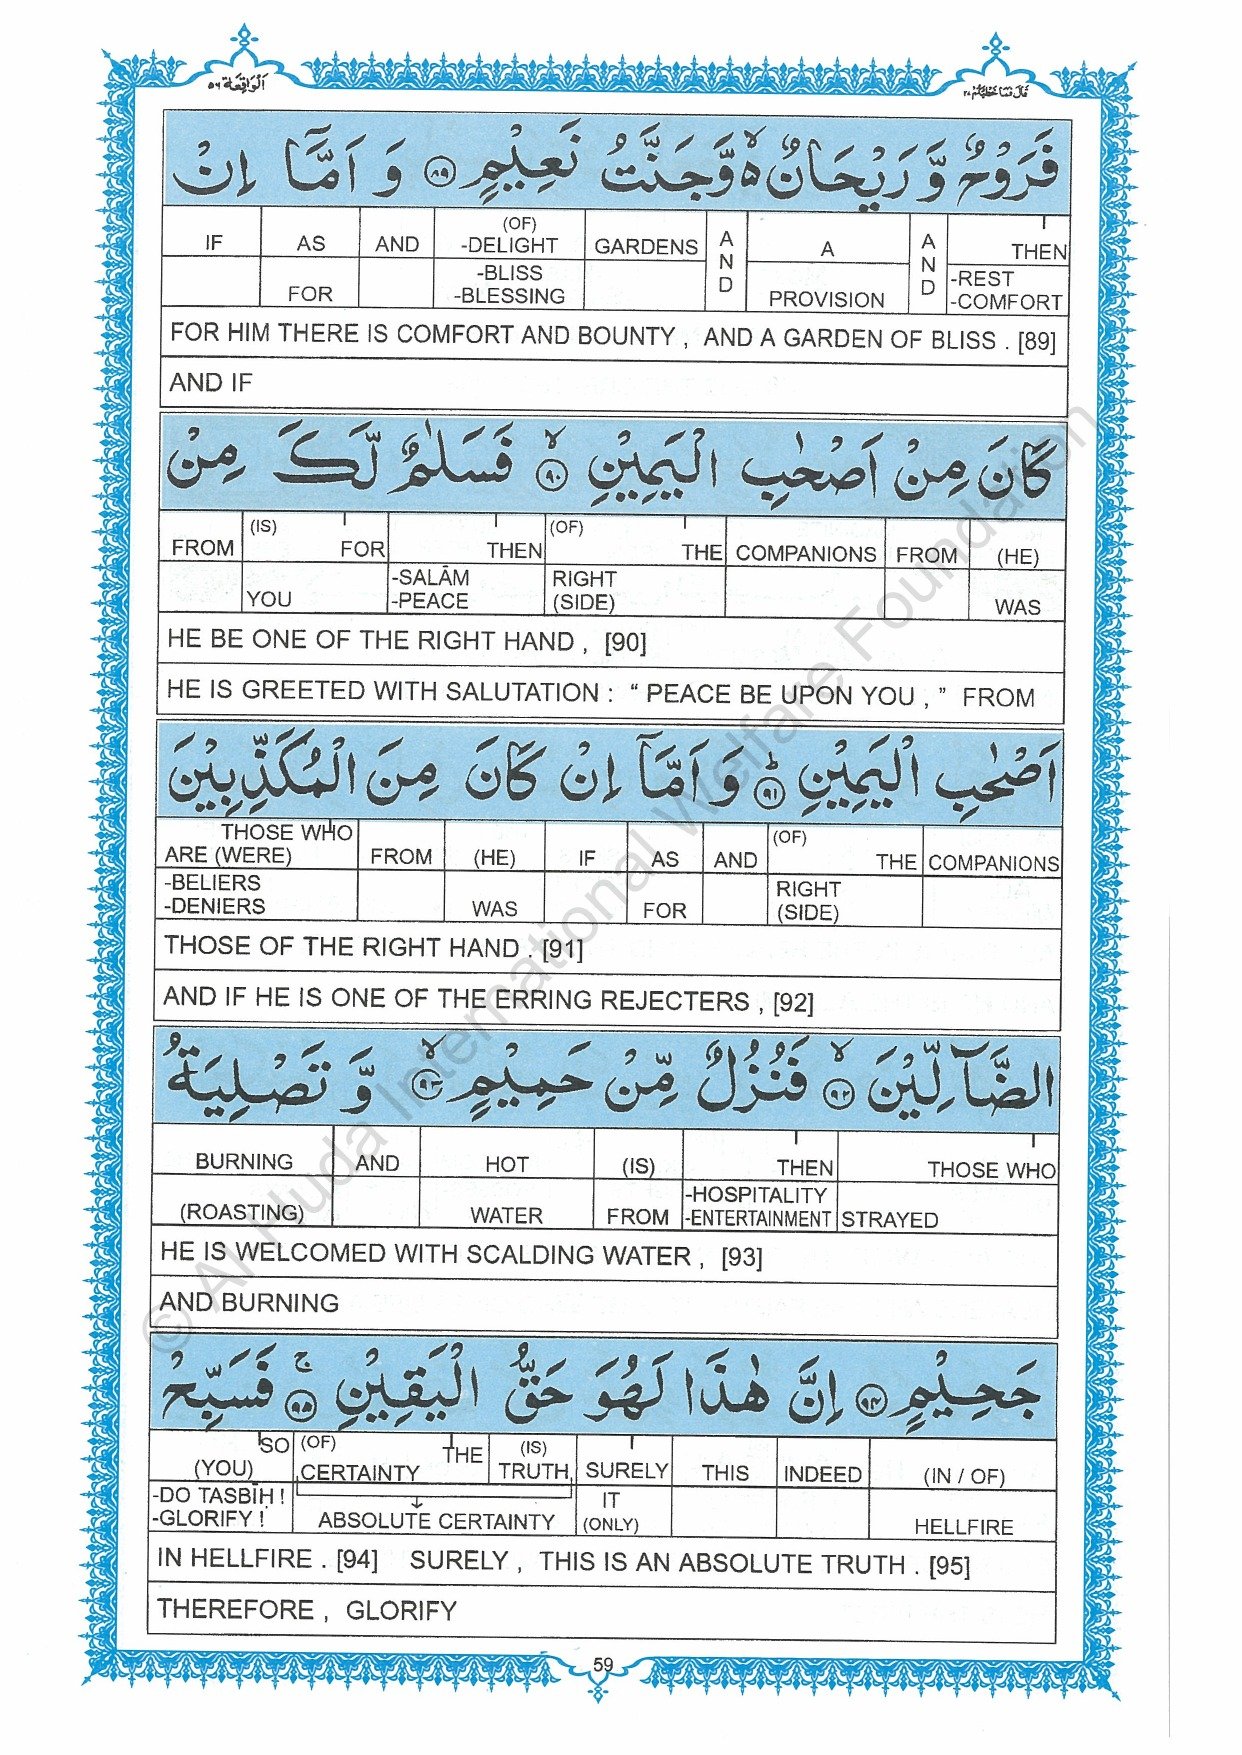 اَلْوَاقِعَة ٥٦
قَالَ فَمَا خَطْبُكُمْ ٢٧
فَرَوْحٌ وَّ رَيْحَانٌ ۙ۬ وَّجَنَّتُ نَعِيْمٍ ٨٩ وَ اَمَّآ اِنْ
IF AS AND (OF) -DELIGHT GARDENS AND A AND THEN
FOR -BLISS -BLESSING PROVISION -REST -COMFORT
FOR HIM THERE IS COMFORT AND BOUNTY , AND A GARDEN OF BLISS . [89]
AND IF
كَانَ مِنْ اَصْحٰبِ الْيَمِيْنِ ۙ ٩٠ فَسَلٰمٌ لَّكَ مِنْ
FROM (IS) FOR THEN (OF) THE COMPANIONS FROM (HE)
YOU -SALĀM -PEACE RIGHT (SIDE) WAS
HE BE ONE OF THE RIGHT HAND , [90]
HE IS GREETED WITH SALUTATION : “ PEACE BE UPON YOU , ” FROM
اَصْحٰبِ الْيَمِيْنِ ؕ ٩١ وَ اَمَّآ اِنْ كَانَ مِنَ الْمُكَذِّبِيْنَ
THOSE WHO ARE (WERE) FROM (HE) IF AS AND (OF) THE COMPANIONS
-BELIERS -DENIERS WAS FOR RIGHT (SIDE)
THOSE OF THE RIGHT HAND . [91]
AND IF HE IS ONE OF THE ERRING REJECTERS , [92]
الضَّآلِّيْنَ ۙ ٩٢ فَنُزُلٌ مِّنْ حَمِيْمٍ ۙ ٩٣ وَّ تَصْلِيَةُ
BURNING AND HOT (IS) THEN THOSE WHO
(ROASTING) WATER FROM -HOSPITALITY -ENTERTAINMENT STRAYED
HE IS WELCOMED WITH SCALDING WATER , [93]
AND BURNING
جَحِيْمٍ ٩٤ اِنَّ هٰذَا لَهُوَ حَقُّ الْيَقِيْنِ ۚ ٩٥ فَسَبِّحْ
SO (YOU) (OF) CERTAINTY THE (IS) TRUTH SURELY THIS INDEED (IN / OF)
-DO TASBĪḤ ! -GLORIFY ! ABSOLUTE CERTAINTY IT (ONLY) HELLFIRE
IN HELLFIRE . [94] SURELY , THIS IS AN ABSOLUTE TRUTH . [95]
THEREFORE , GLORIFY
59
© Al Huda International Welfare Foundation